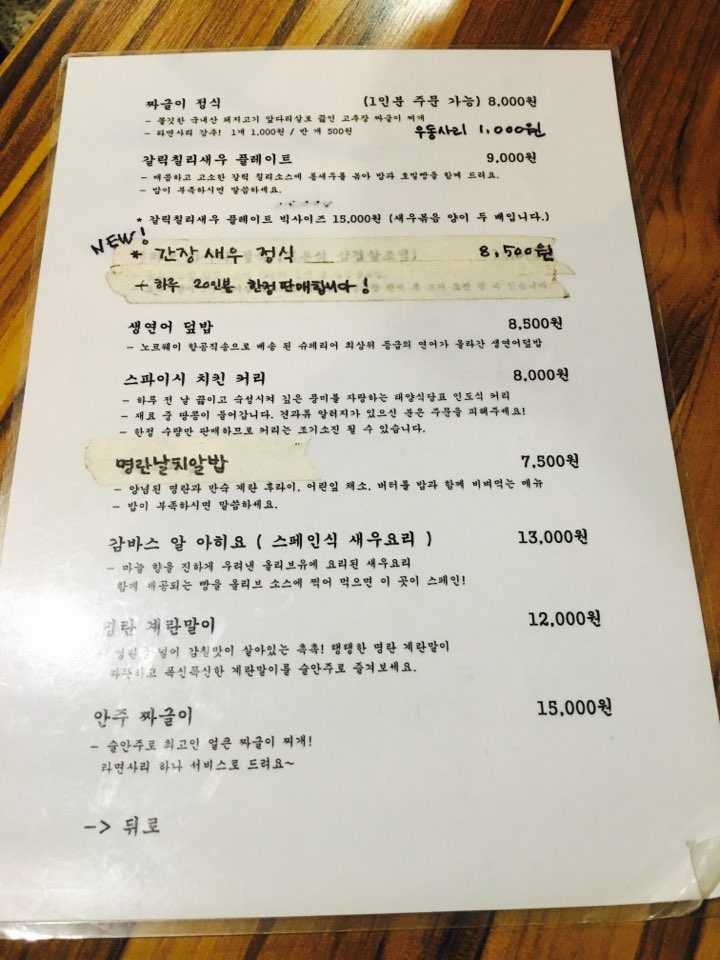 짜글이 정식 (1인분 주문 가능) 8,000원
- 쫄깃한 국내산 돼지고기 앞다리살로 끓인 고추장 짜글이 찌개
- 라면사리 강추! 1개 1,000원 / 반 개 500원 우동사리 1,000원
갈릭칠리새우 플레이트 9,000원
- 매콤하고 고소한 갈릭 칠리소스에 통새우를 볶아 밥과 호밀빵을 함께 드려요.
- 밥이 부족하시면 말씀하세요.
* 갈릭칠리새우 플레이트 빅사이즈 15,000원 (새우볶음 양이 두 배입니다.)
NEW!
* 간장새우 정식 8,500원
+ 하루 20인분 한정판매합니다!
생연어 덮밥 8,500원
- 노르웨이 항공직송으로 배송 된 슈페리어 최상위 등급의 연어가 올라간 생연어덮밥
스파이시 치킨 커리 8,000원
- 하루 전 날 끓이고 숙성시켜 깊은 풍미를 자랑하는 태양식당표 인도식 커리
- 재료 중 땅콩이 들어갑니다. 견과류 알러지가 있으신 분은 주문을 피해주세요!
- 한정 수량만 판매하므로 커리는 조기소진 될 수 있습니다.
명란날치알밥 7,500원
- 양념된 명란과 반숙 계란 후라이, 어린잎 채소, 버터를 밥과 함께 비벼먹는 메뉴
- 밥이 부족하시면 말씀하세요.
감바스 알 아히요 ( 스페인식 새우요리 ) 13,000원
- 마늘 향을 진하게 우려낸 올리브유에 요리된 새우요리
함께 제공되는 빵을 올리브 소스에 찍어 먹으면 이 곳이 스페인!
명란 계란말이 12,000원
- 명란을 넣어 감칠맛이 살아있는 촉촉! 탱탱한 명란 계란말이
따뜻하고 폭신폭신한 계란말이를 술안주로 즐겨보세요.
안주 짜글이 15,000원
- 술안주로 최고인 얼큰 짜글이 찌개!
라면사리 하나 서비스로 드려요~
-> 뒤로